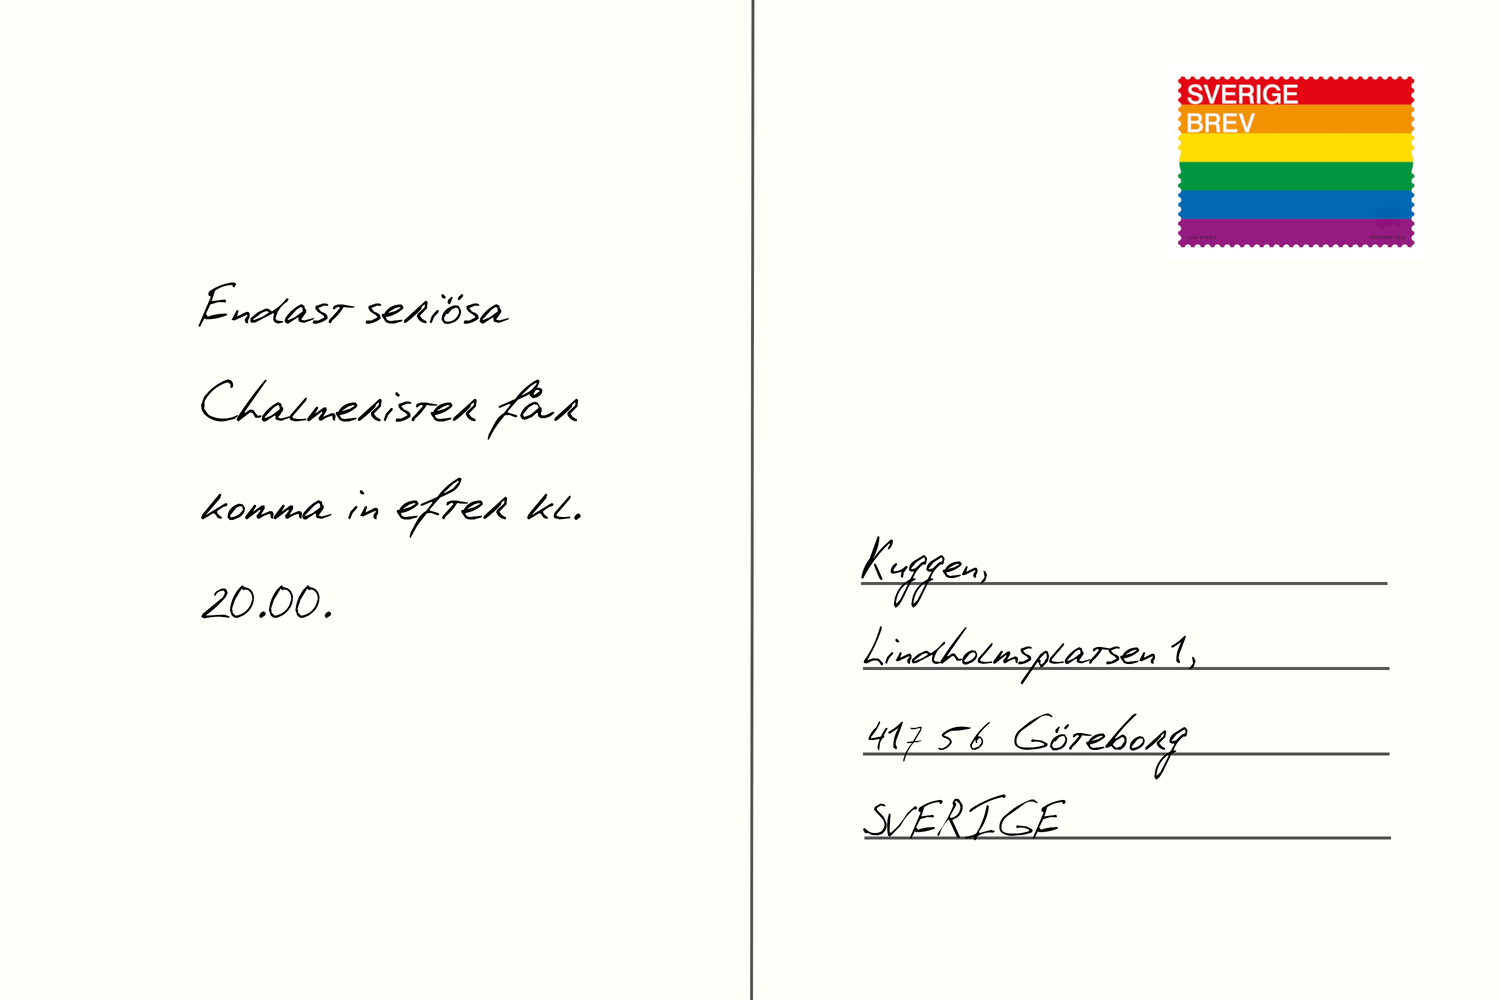 Endast seriösa
Chalmerister får
komma in efter kl.
20.00.
SVERIGE
BREV
Kuggen,
Lindholmsplatsen 1,
417 56 Göteborg
SVERIGE